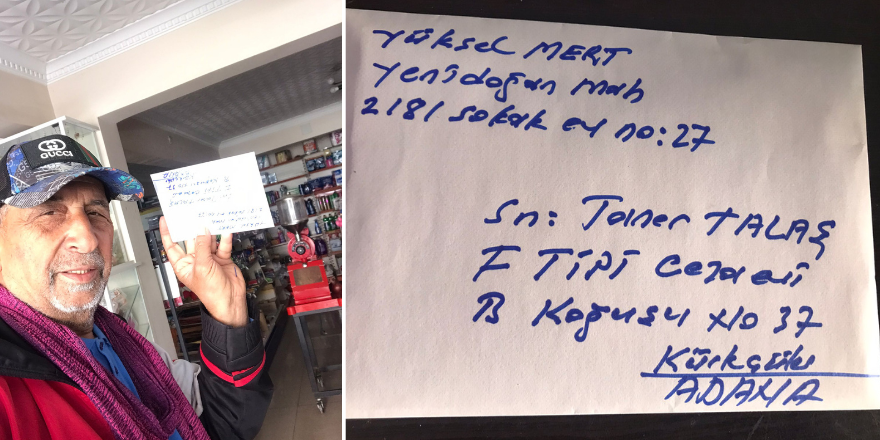 GUCCI
Yüksel MERT
Yenidoğan mah
2181 sokak ev no:27
Sn: Taner TALAŞ
F TİPİ Cezaevi
B Koğuşu No 37
Kürkçüler
ADANA